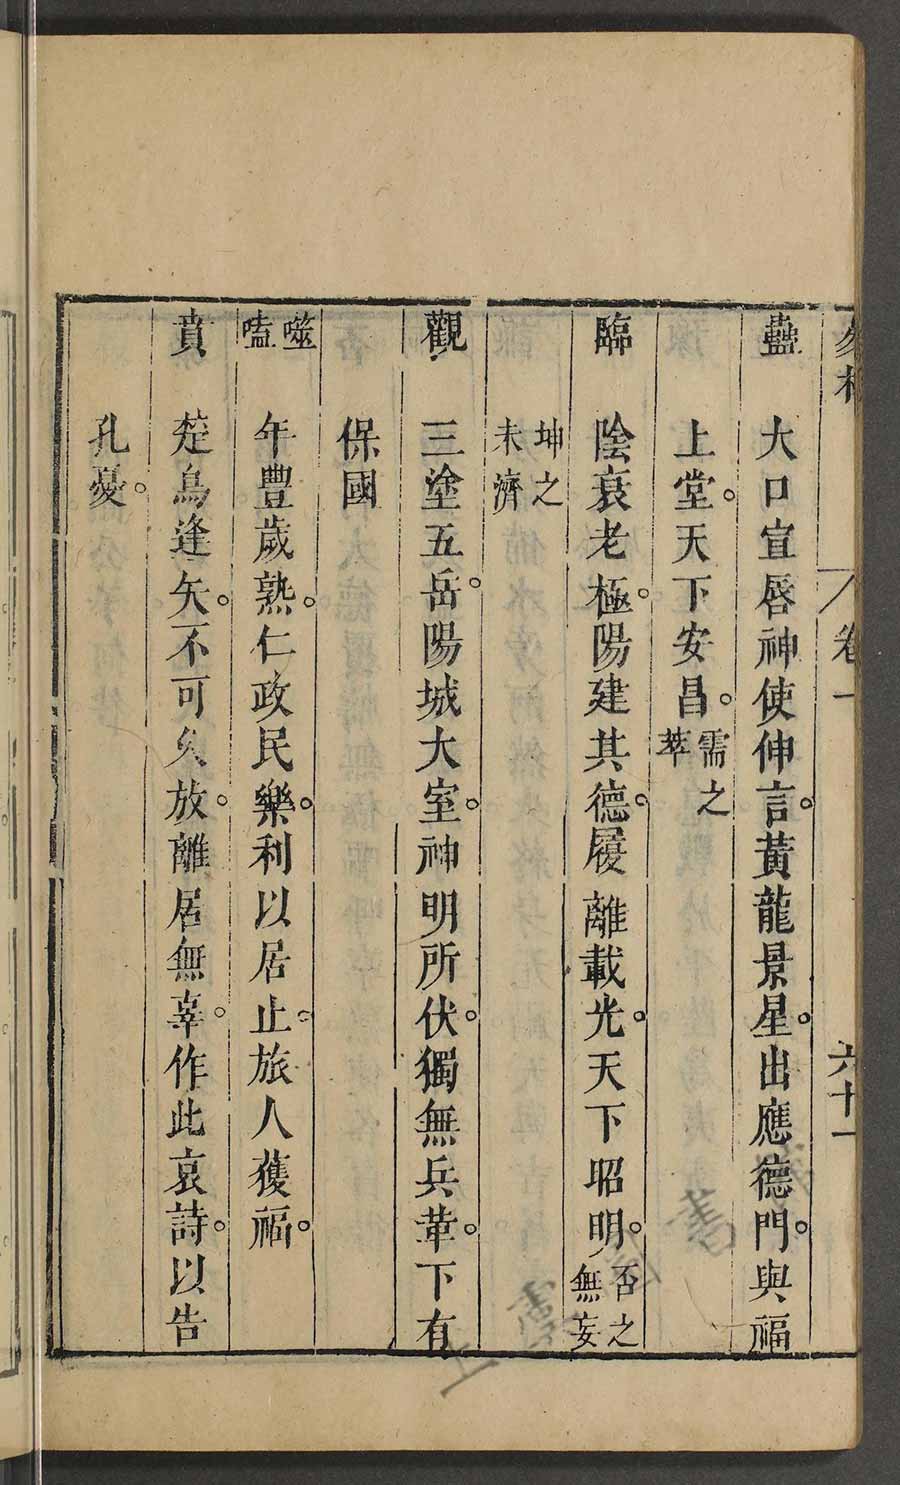 卷一 六十一
蠱 大口宣唇神使伸言。黃龍景星。出應德門。與福
上堂。天下安昌。需之萃
臨 陰衰老極。陽建其德。履離載光。天下昭明。否之無妄
坤之未濟
觀 三塗五岳。陽城大室。神明所伏。獨無兵革。下有
保國
噬嗑 年豐歲熟。仁政民樂。利以居止。旅人獲福。
賁 楚烏逢矢。不可久放。離居無辜。作此哀詩。以告
孔憂。